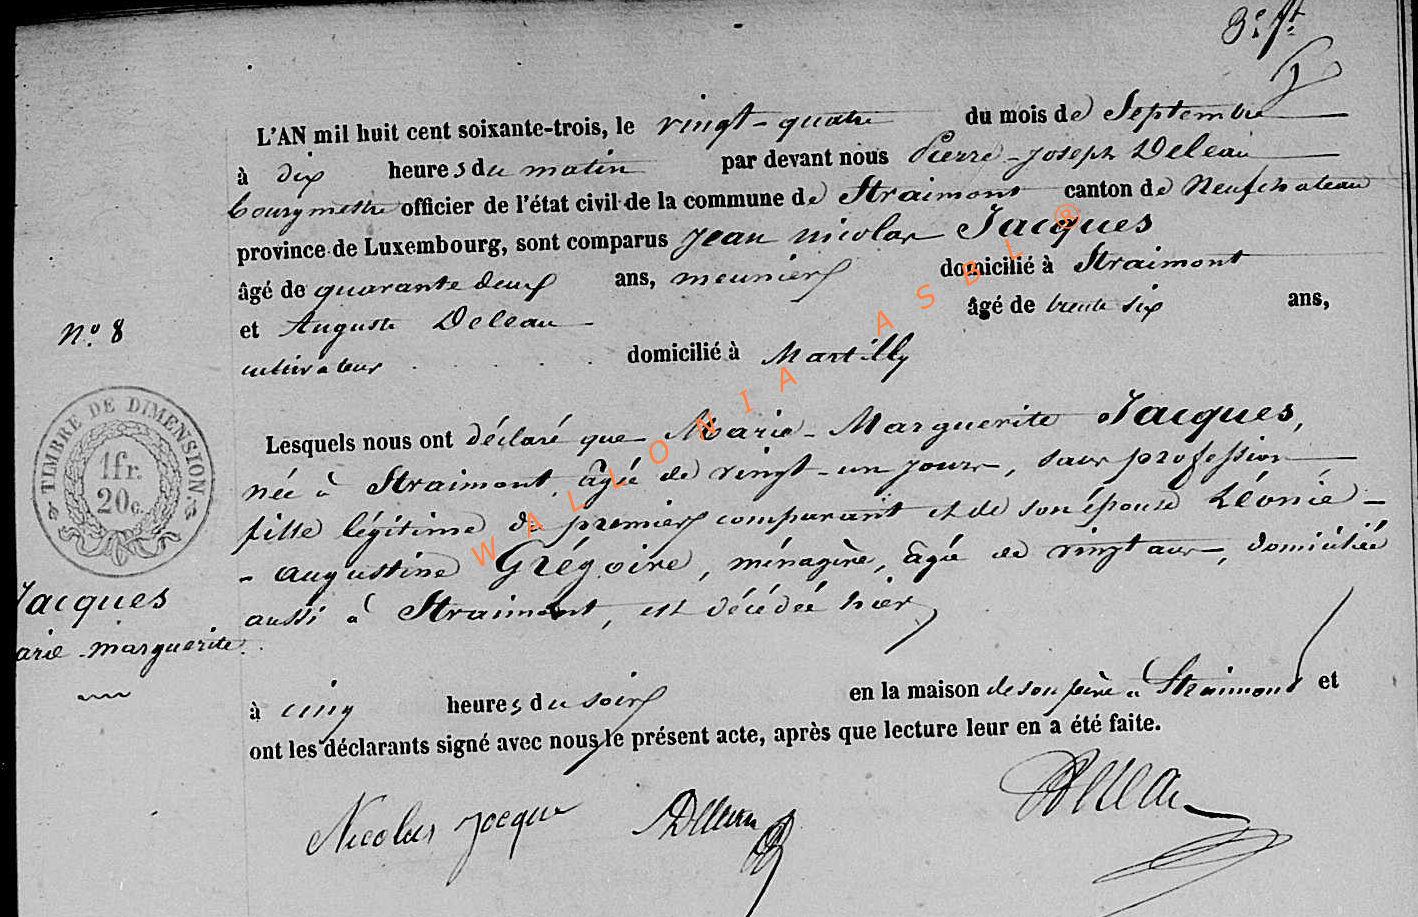 3e ft
L'AN mil huit cent soixante-trois, le vingt-quatre du mois de Septembre
à dix heures du matin par devant nous Pierre-Joseph Deleau
bourgmestre officier de l'état civil de la commune de Straimont canton de Neufchateau
province de Luxembourg, sont comparus Jean nicolas Jacques
âgé de quarante deux ans, meunier domicilié à Straimont
et Auguste Deleau âgé de trente six ans,
cultivateur domicilié à Martilly
Lesquels nous ont déclaré que Marie-Marguerite Jacques,
née à Straimont, âgée de vingt-un jours, sans profession
fille légitime du premier comparant et de son épouse Léonie-
-augustine Grégoire, ménagère, âgée de vingt ans, domiciliée
aussi à Straimont, est décédée hier,
à cinq heures du soir en la maison de son père à Straimont et
ont les déclarants signé avec nous le présent acte, après que lecture leur en a été faite.
Nicolas Jacque ADeleau Deleau
No. 8
TIMBRE DE DIMENSION.
1fr.
20c.
Jacques
arie-marguerite.
WALLONIA ASBL ®